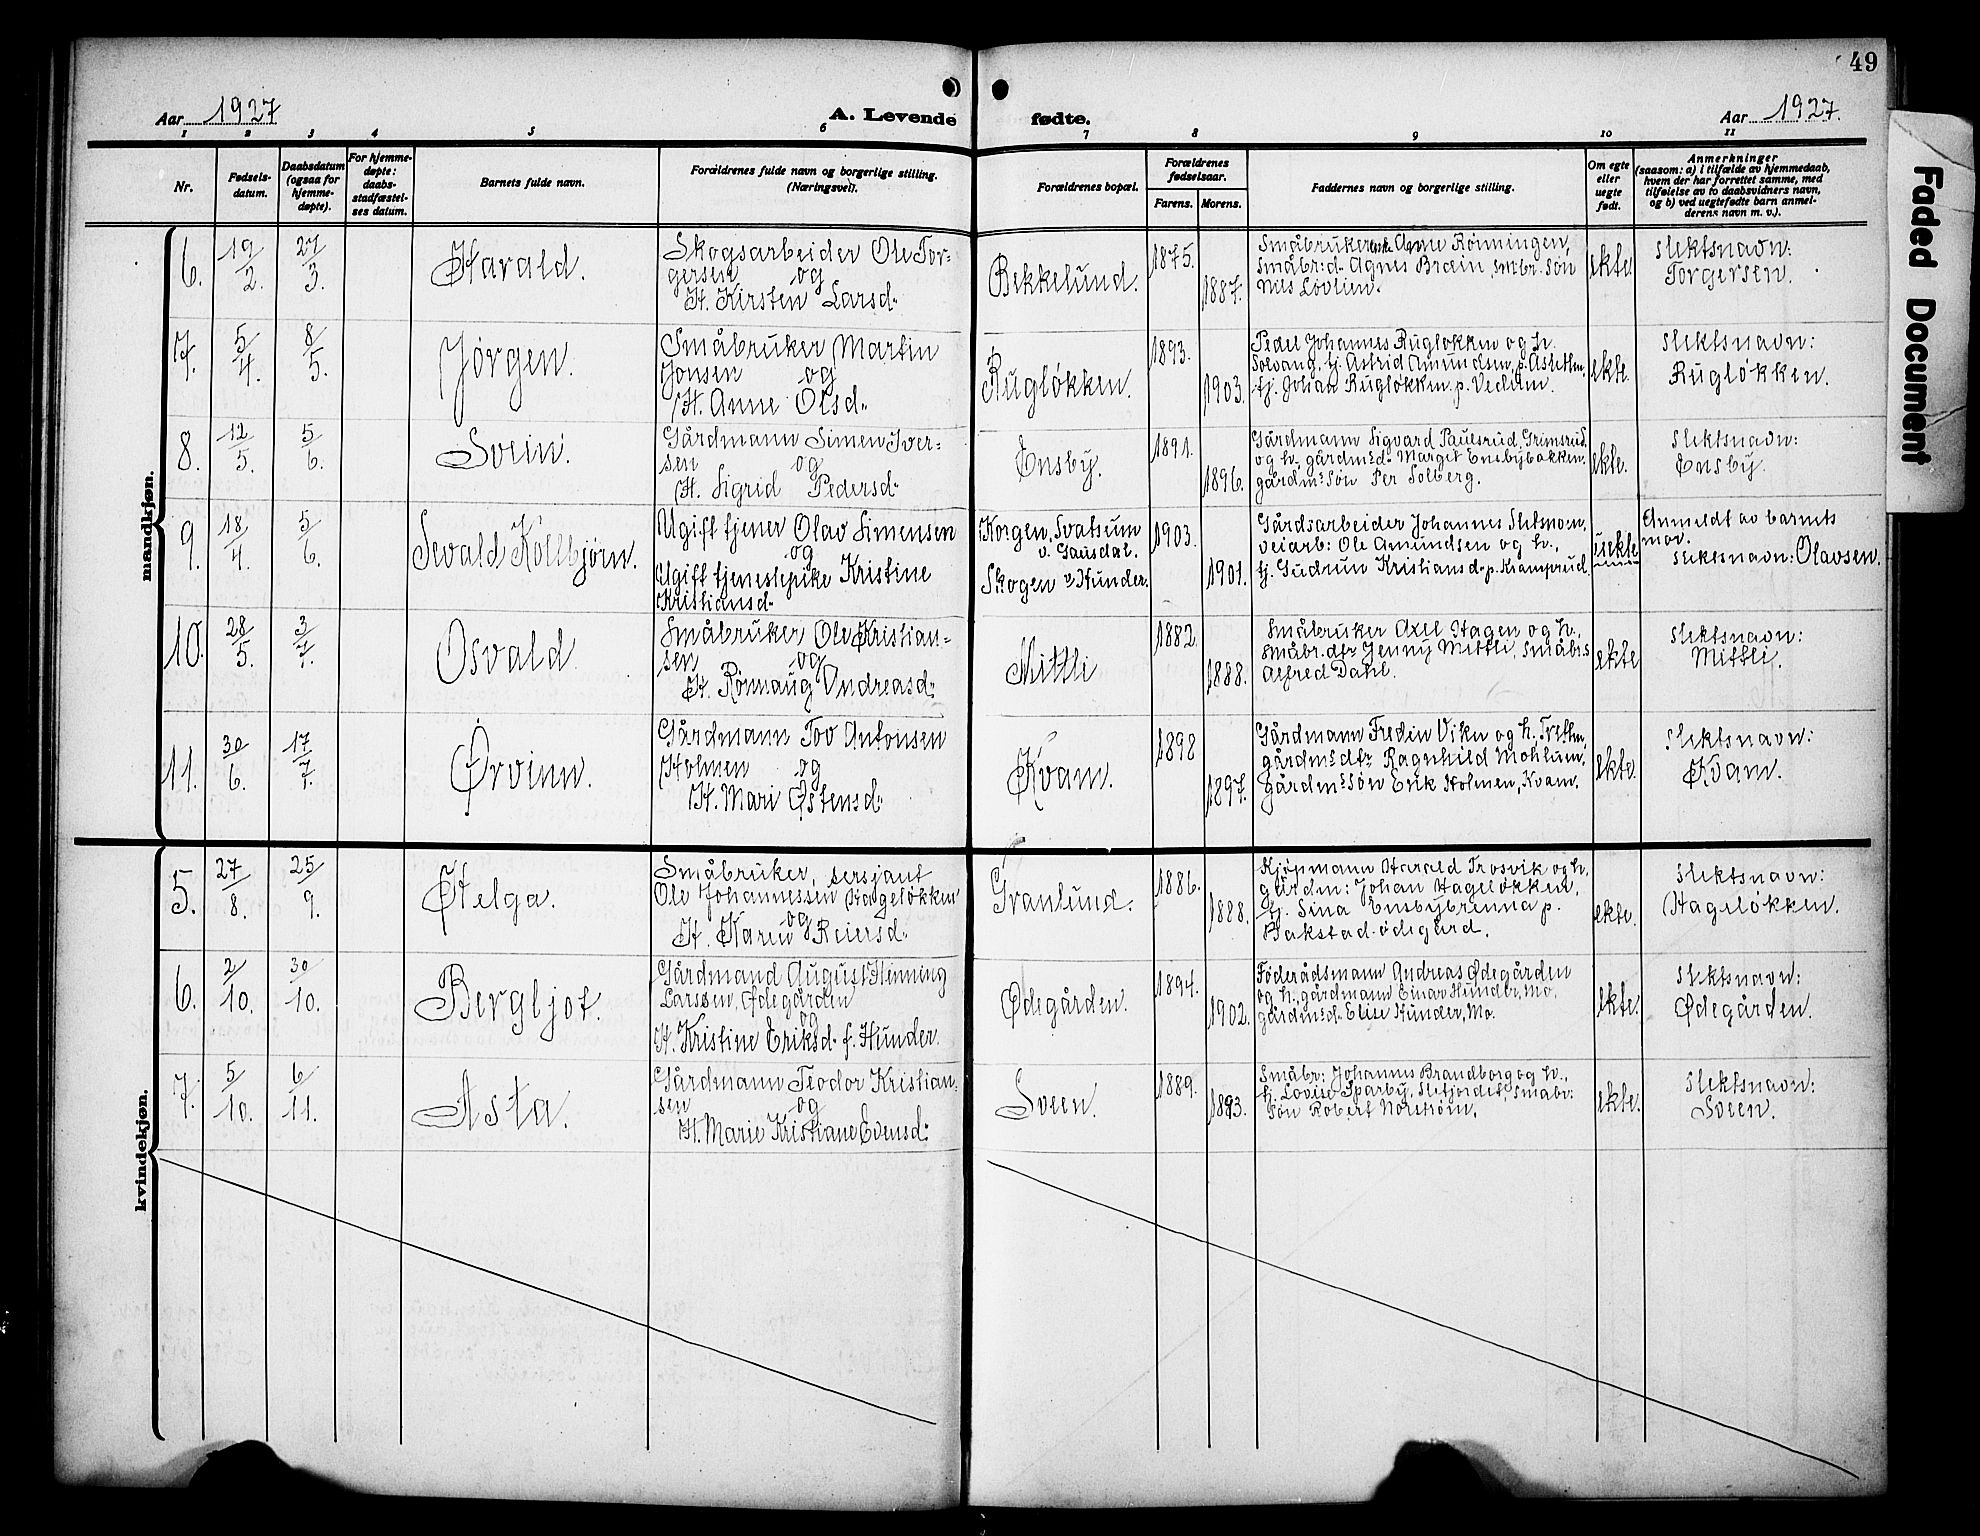 49
Aar 1927
A. Levende
fødte.
Aar 1927.
Faded Document
1 2 3 4 5 6 7 8 9 10 11
Nr.
Fødsels-
datum.
Daabsdatum
(ogsaa for
hjemme-
døpte).
For hjemme-
døpte:
daabs-
stadfæstel-
ses datum.
Barnets fulde navn.
Forældrenes fulde navn og borgerlige stilling.
(Næringsvei).
Forældrenes bopæl.
Forældrenes
fødselsaar.
Farens. Morens.
Faddernes navn og borgerlige stilling.
Om egte
eller
uegte
født.
Anmerkninger
(saasom: a) i tilfælde av hjemmedaab,
hvem der har forrettet samme, med
tilføielse av to daabsvidners navn,
og b) ved uegtefødte barn anmel-
derens navn m. v.).
mandkjøn.
6.
19/2.
27/3.
Harald.
Skogsarbeider Ole Tor-
gersen og
H. Kirsten Larsd.
Bekkelund.
1875.
1887.
Småbruker Anne Rønningen,
småbr: d. Agnes Bræin, småbr. søn
Nils Løvlien.
ekte
slektsnavn:
Torgersen.
7.
5/4.
8/5.
Jørgen.
Småbruker Martin
Jonsen og
H. Anne Olsd.
Rugløkken.
1893.
1903.
Pedel Johannes Rugløkken og h.
Solvang, tj. Astrid Amundsen, p.
tj. Johan Rugløkken, p. Vedum.
ekte.
slektsnavn:
Rugløkken.
8.
12/5.
5/6.
Svein.
Gårdmann Simen Iver-
sen og
H. Sigrid Pedersd.
Ensby.
1891.
1896.
Gårdmann Sigvard Paulsrud, Grimsrud,
og h., gårdm: d. Margit Ensbybakken,
gårdm: søn Per Solberg.
ekte.
slektsnavn:
Ensby.
9.
18/4.
5/6.
Sevald Kollbjørn.
Ugift tjener Olav Simensen
og
Ugift tjenestepike Kristine
Kristiansd.
Korgen, Svatsum
v. Gausdal.
Skogen v. Hunder.
1903.
1901.
Gårdsarbeider Johannes Sletmoen,
veiarb: Ole Amundsen og h.,
tj. Gudrun Kristiansd. p. Kramprud.
uekte
Anmeldt av barnets
mor.
slektsnavn: Olavsen.
10.
28/5.
3/7.
Osvald
Småbruker Ole Kristian-
sen og
H. Rønnaug Andreasd.
Mittli
1882.
1888.
Småbruker Axel Hagen og h.,
småbr. dtr. Jenny Mittli, småb: s
Alfred Dahl.
ekte
slektsnavn:
Mittli.
11.
30/6.
17/7.
Ørvinn.
Gårdmann Tov Antonsen
Holmen og
H. Mari Østensd.
Kvam.
1898
1897.
Gårdmann Fredin Viken og h. Tretten,
gårdm: dtr. Ragnhild Mohlum,
gårdm: søn Erik Holmen, Kvam.
ekte.
slektsnavn:
Kvam.
kvindekjøn.
5.
27/8.
25/9.
Helga.
Småbruker, sersjant
Ole Johannessen Hageløkken
og
H. Karen Reiersd.
Granlund.
1886.
1888.
Kjøpmann Harald Trosvik og h.
gårdm: Johan Hageløkken,
tj. Sina Ensbybrenna p.
Bakstad-ødegård.
ekte.
slektsnavn:
Hageløkken.
6.
2/10.
30/10.
Bergljot.
Gårdmand August Henning
Larssen, Ødegården
og
H. Kristine Eriksd. f. Hunder.
Ødegården.
1894.
1902.
Føderådsmann Andreas Ødegården
og h., gårdmann Einar Hunder, Mo,
gårdm: d. Elise Hunder, Mo.
ekte.
slektsnavn:
Ødegården.
7.
5/10.
6/11.
Asta.
Gårdmann Teodor Kristian-
sen og
H. Marie Kristiane Evensd.
Sveen.
1889.
1893.
Småbr: Johannes Brandborg og h.,
tj. Lovise Sparby, Sletjordet, småbr:
søn Robert Norstrøm.
ekte.
slektsnavn:
Sveen.